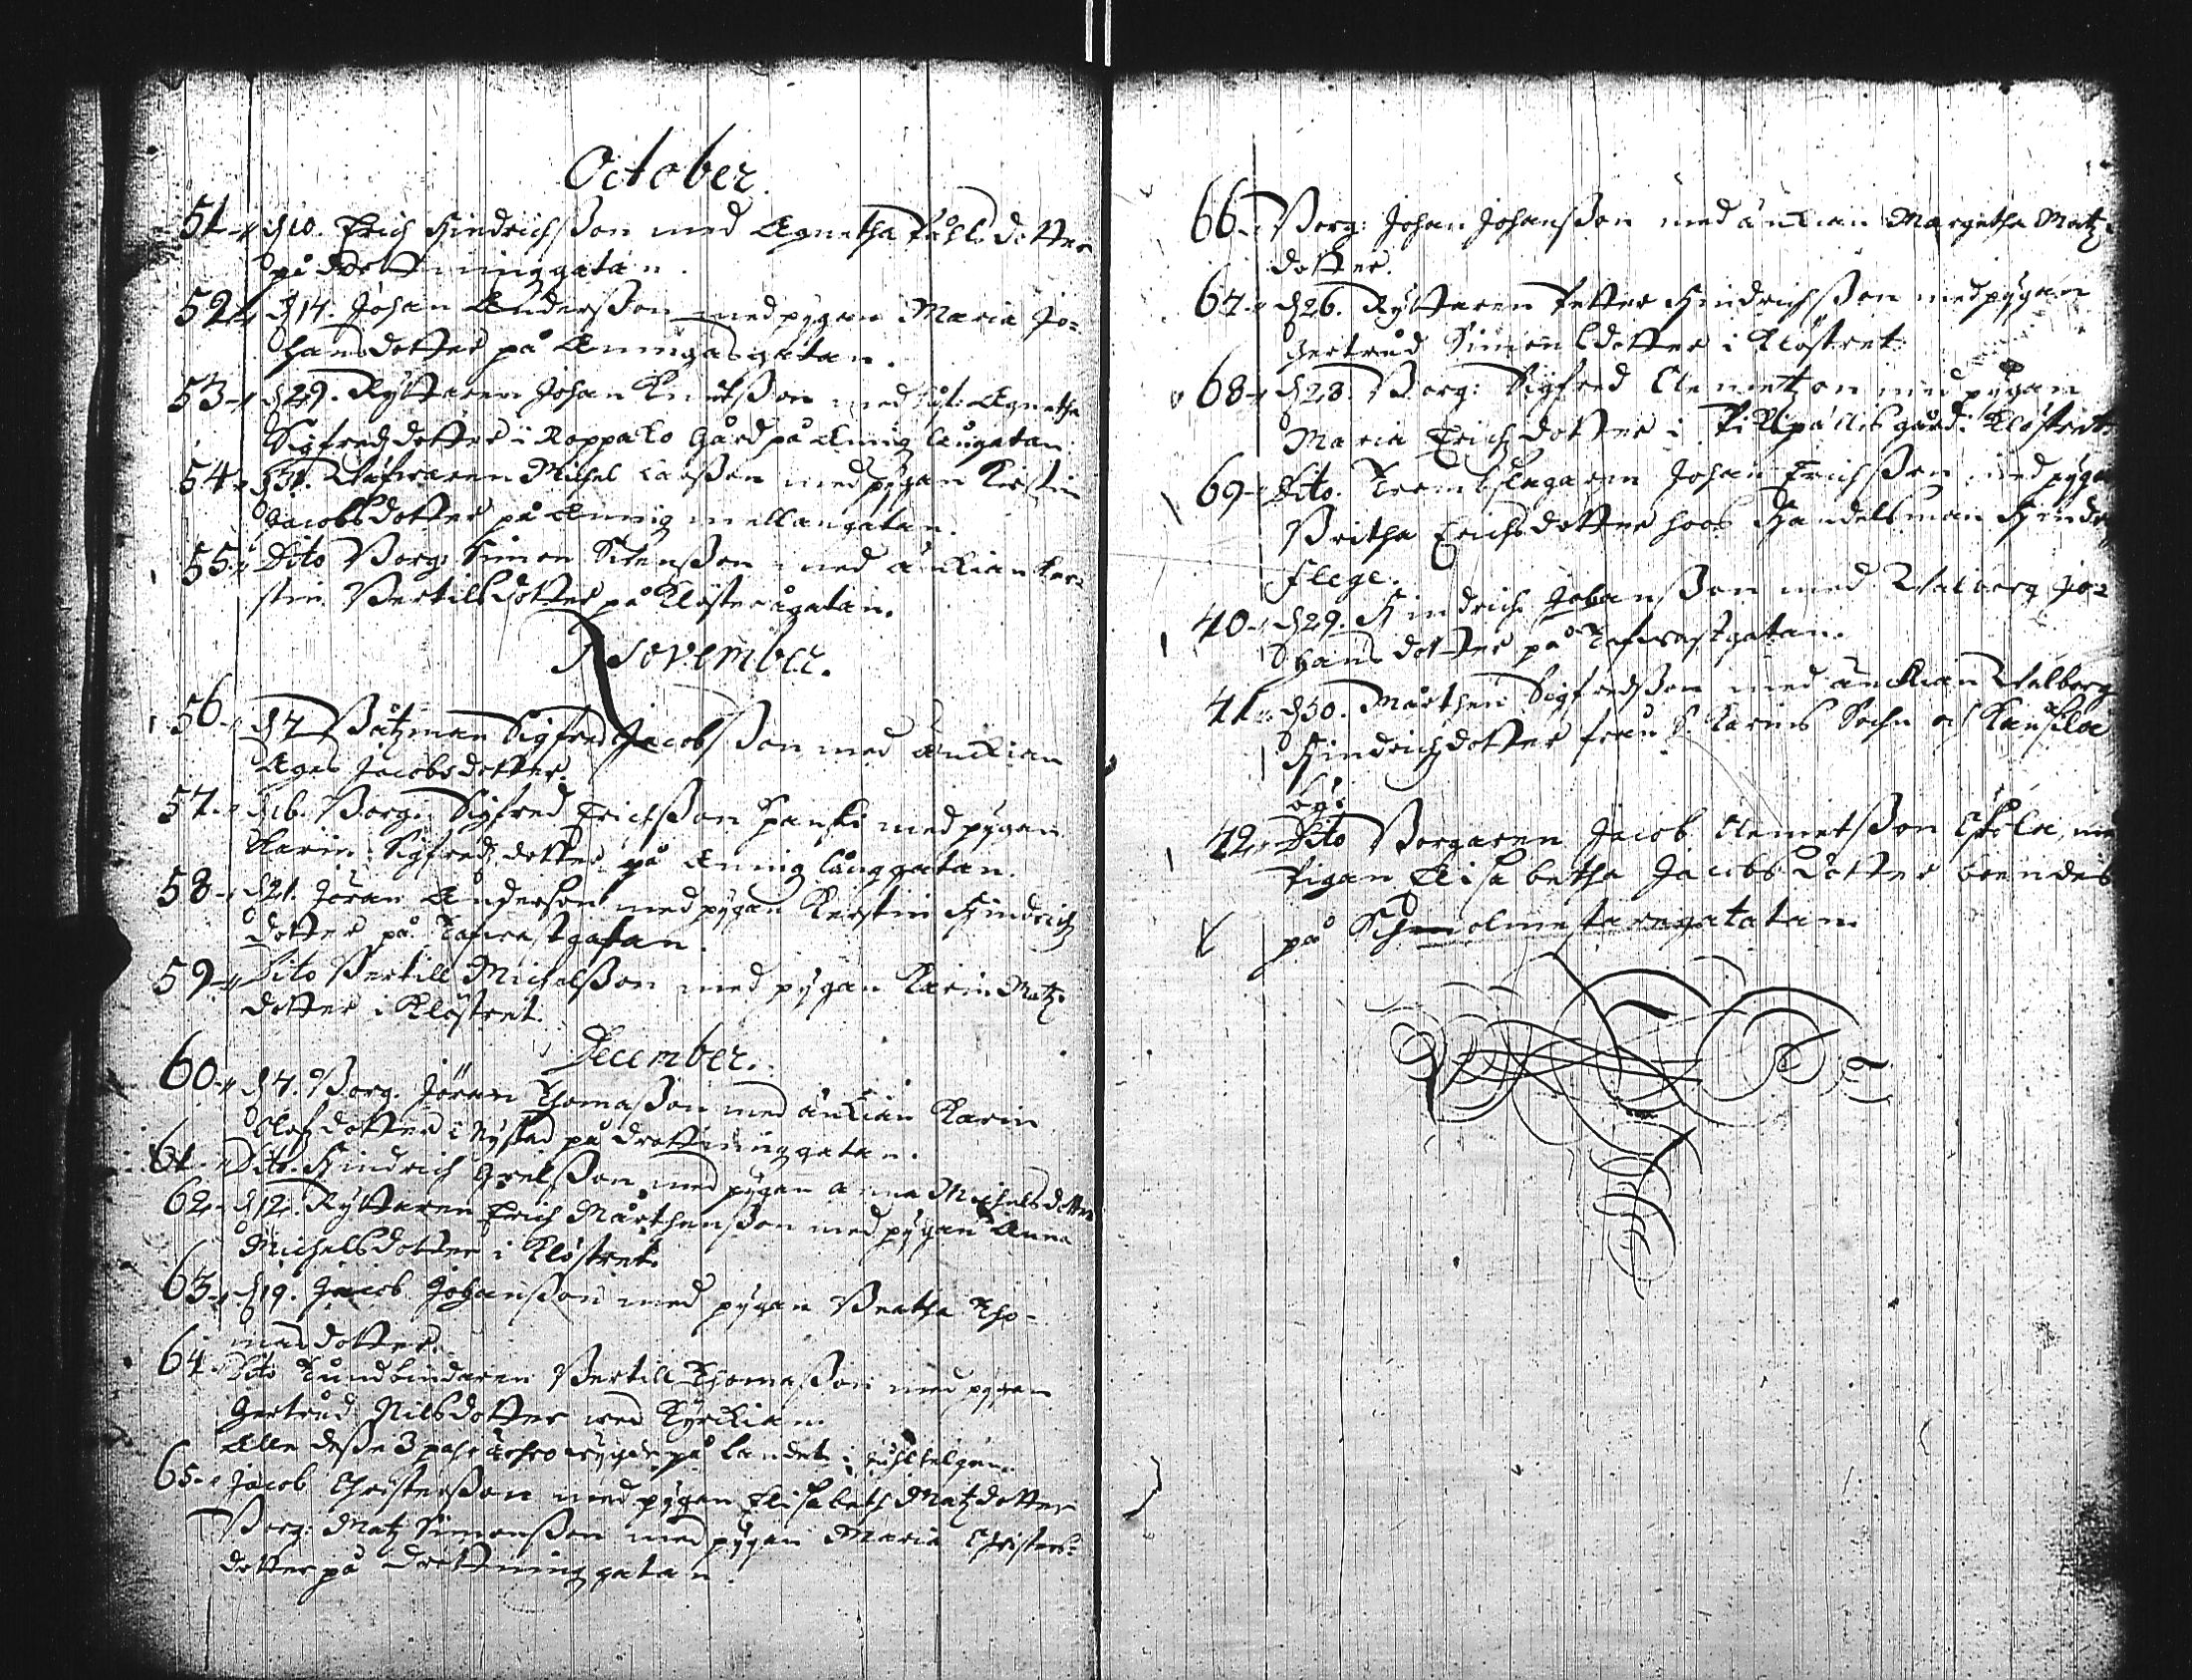 October.
51 d. 10. Erich Hindrichsson med Agnetha Påhlsdotter
på Drottninggatan.
52 d. 14. Johan Andersson med pygan Maria Jo-
hansdotter på Aningasgatan.
53 d. 29. Ryttaren Johan Knutsson med Agnetha
Sigfredzdotter i Koppalo Gård på Aning Långgatan.
54 d. 31. Michel Larsson med pygan Kirstin
Jacobsdotter på Aning mellangatan.
55 Dito Borg: Simon Stensson med änckian Ker-
stin Bertilsdotter på Klöstergatan.
November.
56 d. 7 Båtzman Sigfred Jacobsson med änckian
Agnes Jacobsdotter.
57 d. 16. Borg: Sigfred Erichsson Hanski med pygan
Karin Sigfredzdotter på Aning långgatan.
58 d. 21. Jöran Andersson med pygan Kerstin Hindrichz
dotter på Tafwastgatan.
59 Dito Bertill Michelsson med pygan Karin Matz
dotter i Klöstret.
December.
60 d. 4. Borg. Jöran Thomasson med änckian Karin
Olofzdotter i Nystad på drottninggatan.
61 Dito. Hindrich Grelsson med pygan Anna Michelsdotter
62 d. 12. Ryttaren Erich Mårthensson med pygan Anna
Michelsdotter i Klöstret.
63 d. 19. Jacob Johansson med pygan Beatha Tho-
masdotter.
64 Dito Tunbindaren Bertill Thomasson med pygan
Gertrud Nilsdotter wed Kyrckian.
Alle desse 3 pahr på Landet i
65 Jacob Christersson med pygan Elisabeth Matzdotter
Borg: Matz Simonsson med pygan Maria Christers-
dotter på drottninggatan.
66 Borg: Johan Johansson med änckian Margetha Matz
dotter.
67 d. 26. Ryttaren Petter Hindrichsson med pygan
Gertrud Simonsdotter i Klöstret.
68 d. 28. Borg: Sigfred Clemetzon med pygan
Maria Erichzdotter i gård i Klöstret.
69 Dito. Trombslagaren Johan Erichsson med pygan
Britha Erichsdotter hoos Handelsman Hindr
Flege.
70 d. 29. Hindrich Johansson med Walborg Jo-
hansdotter på Tafwastgatan.
71 d. 30. Mårthen Sigfredsson med änckian Walborg
Hindrichzdotter från S. Karins Sochn och
by.
72 Dito Borgaren Jacob Clemetsson med
Pigan Elisabetha Jacobs dotter boendes
på Schmolmestaregatatan